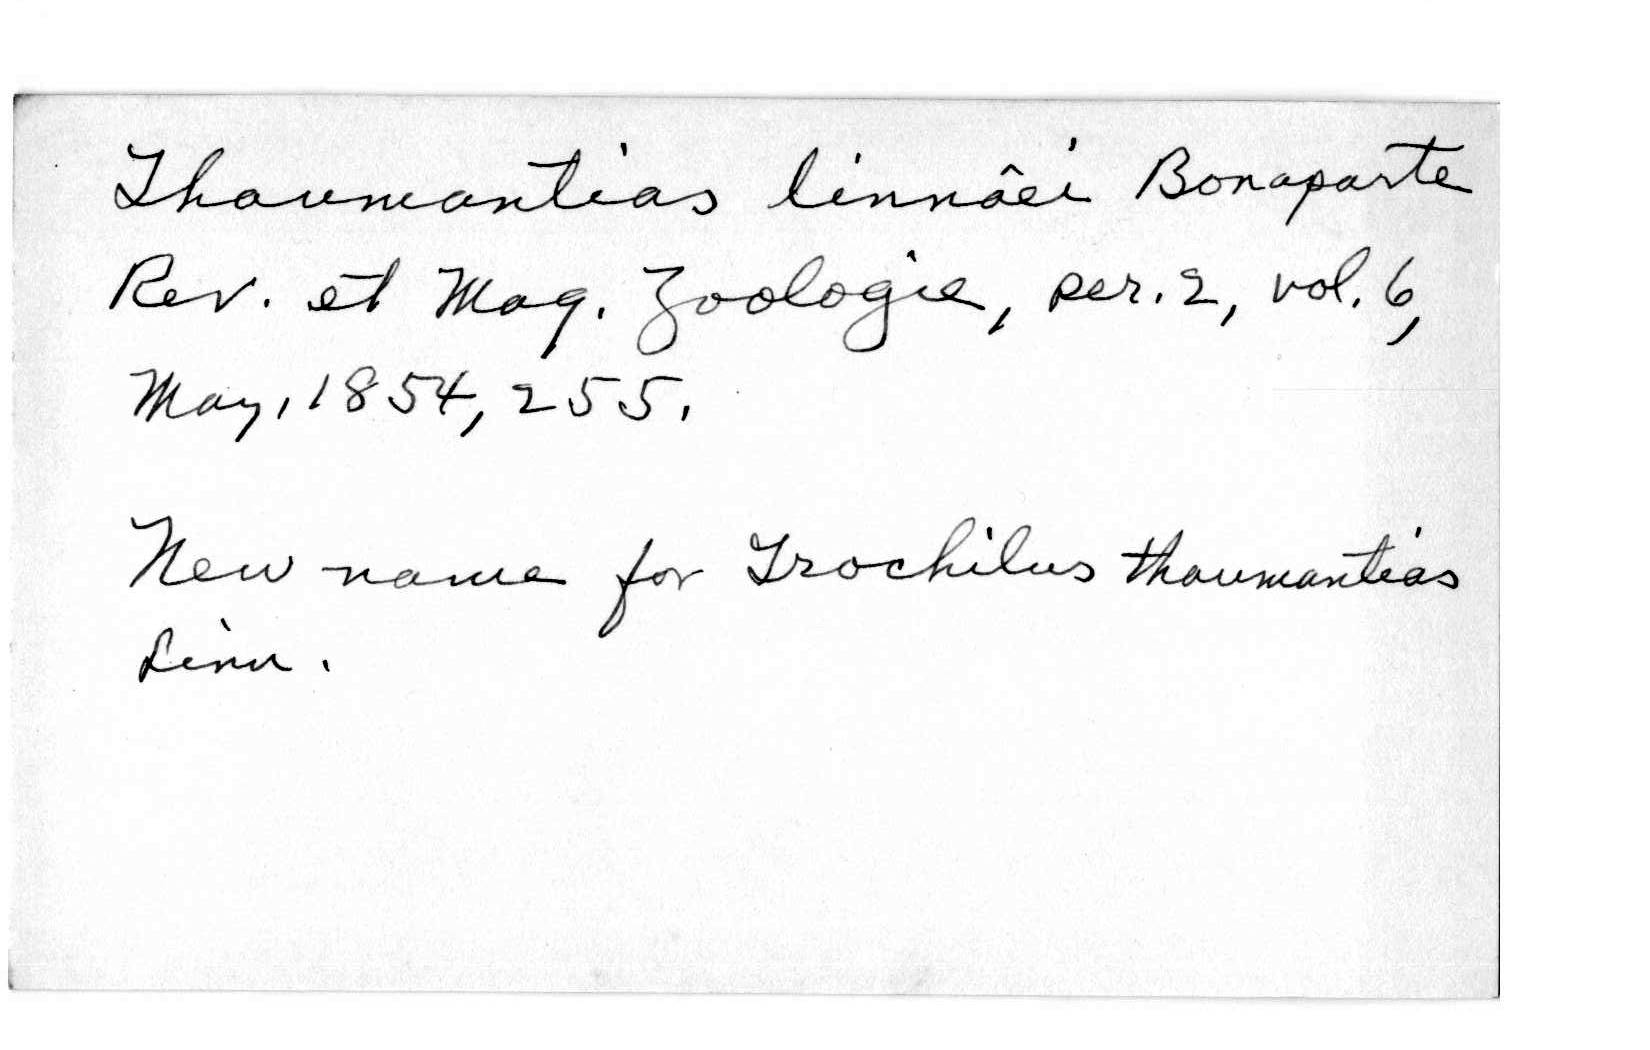 Thaumantias linnâei Bonaparte
Rev. et Mag. Zoologie, ser. 2, vol. 6,
May, 1854, 255.
New name for Trochilus thaumantias
Linn.